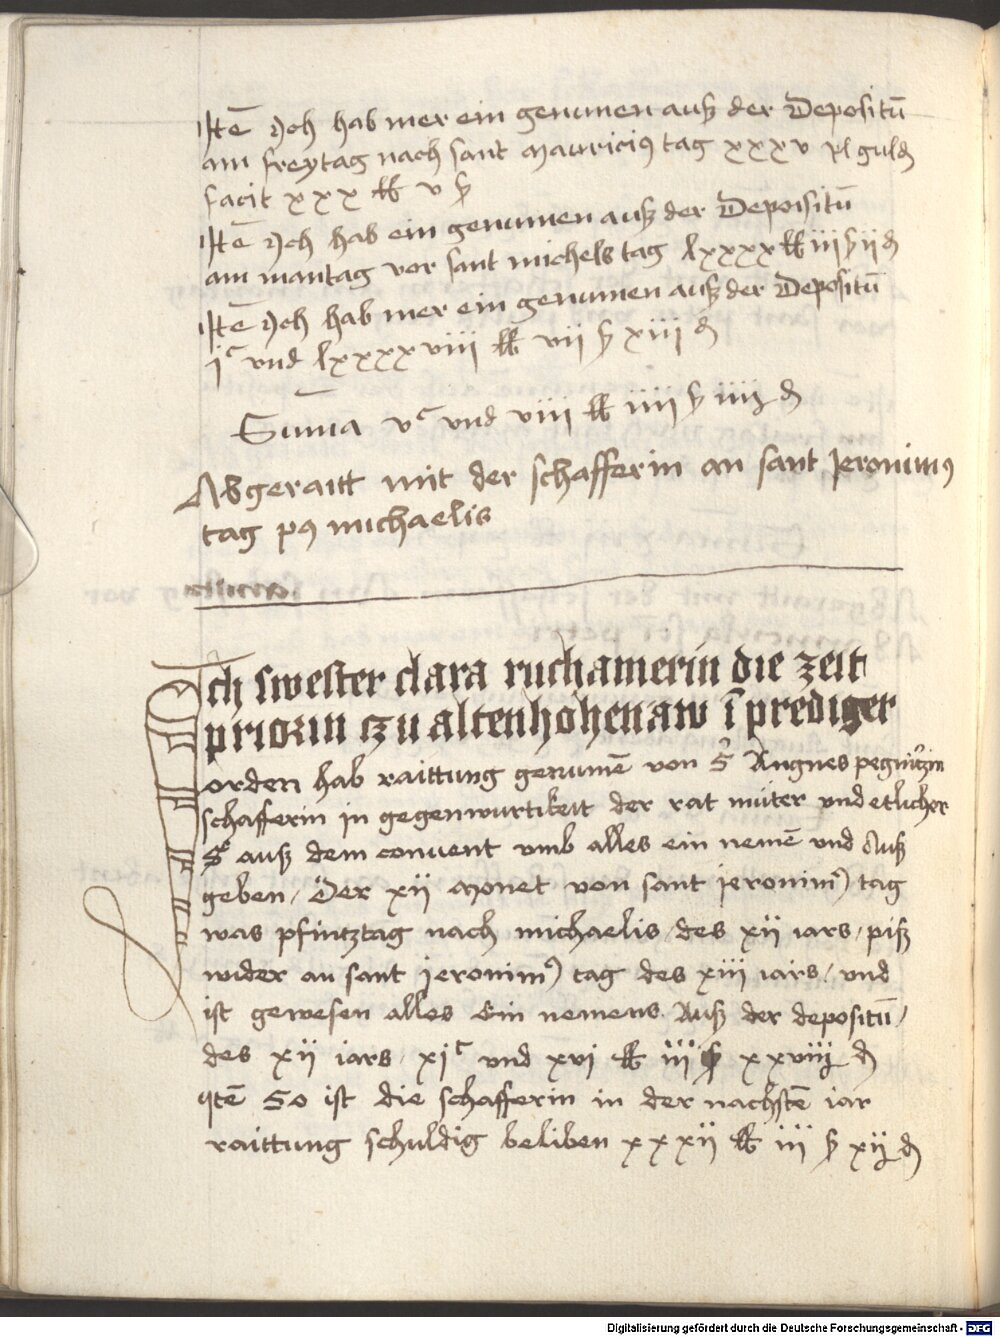 Itē Ich hab mer ein genumen auß der Depositū
am freytag nach sant mauricius tag xxxv Rl guldn
facit xxx lb v ß
Itē Ich hab ein genumen auß der Deposistū
am mantag vor sant michels tag lxxxx lb iii ß ii d
Itē Ich hab mer ein genumen auß der Depositū
jᶜ vnd lxxxxviii lb vii ß xiii d
Sūma vᶜ vnd viii lb iiii ß iiij d
Abgeraitt mit der schafferin an sant Jeronimus
tag p9 michaelis
Ich swester clara ruchamerin die zeit
priorin czu altenhohenaw ī prediger
orden hab raittung genumē von S Angnes pegnitzin
schafferin in gegenwurtikeit der rat muter vnd etlicher
S auß dem conuent vmb alles ein nemē vnd Auß
geben / Der xii monet von sant ieronim9 tag
was pfintztag nach michaelis / des xii iars / piß
wider an sant jeronim9 tag des xiii iars / vnd
ist gewesen alles Ein nemens Auß der depositū /
des xii iars / xiᶜ vnd xvi lb iii ß xxviij d
Itē So ist die schafferin in der nachstē iar
raittung schuldig beliben xxxii lb iii ß xij d
Digitalisierung gefördert durch die Deutsche Forschungsgemeinschaft - DFG